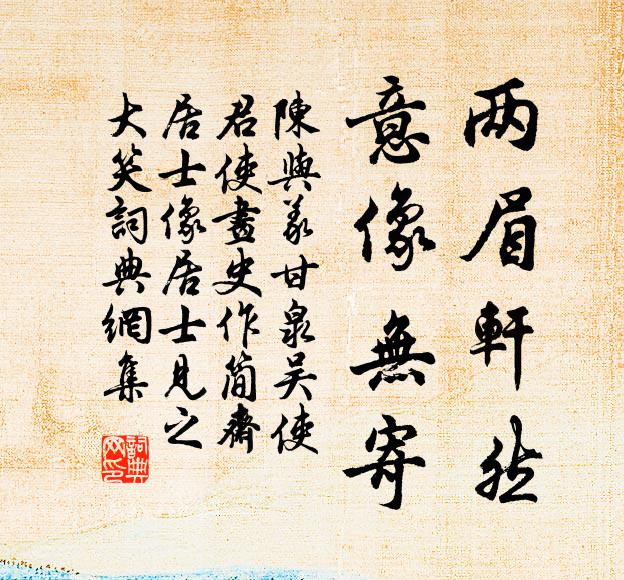 两眉軒然
意像無寄
陳與義甘泉吳使
君使畫史作簡齋
居士像居士見之
大笑詞典網集